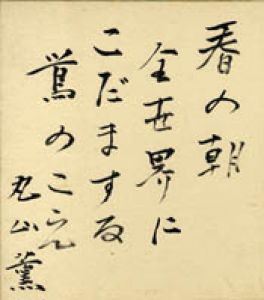 春の朝
全世界に
こだまする
鶯のこゑ
丸山薫